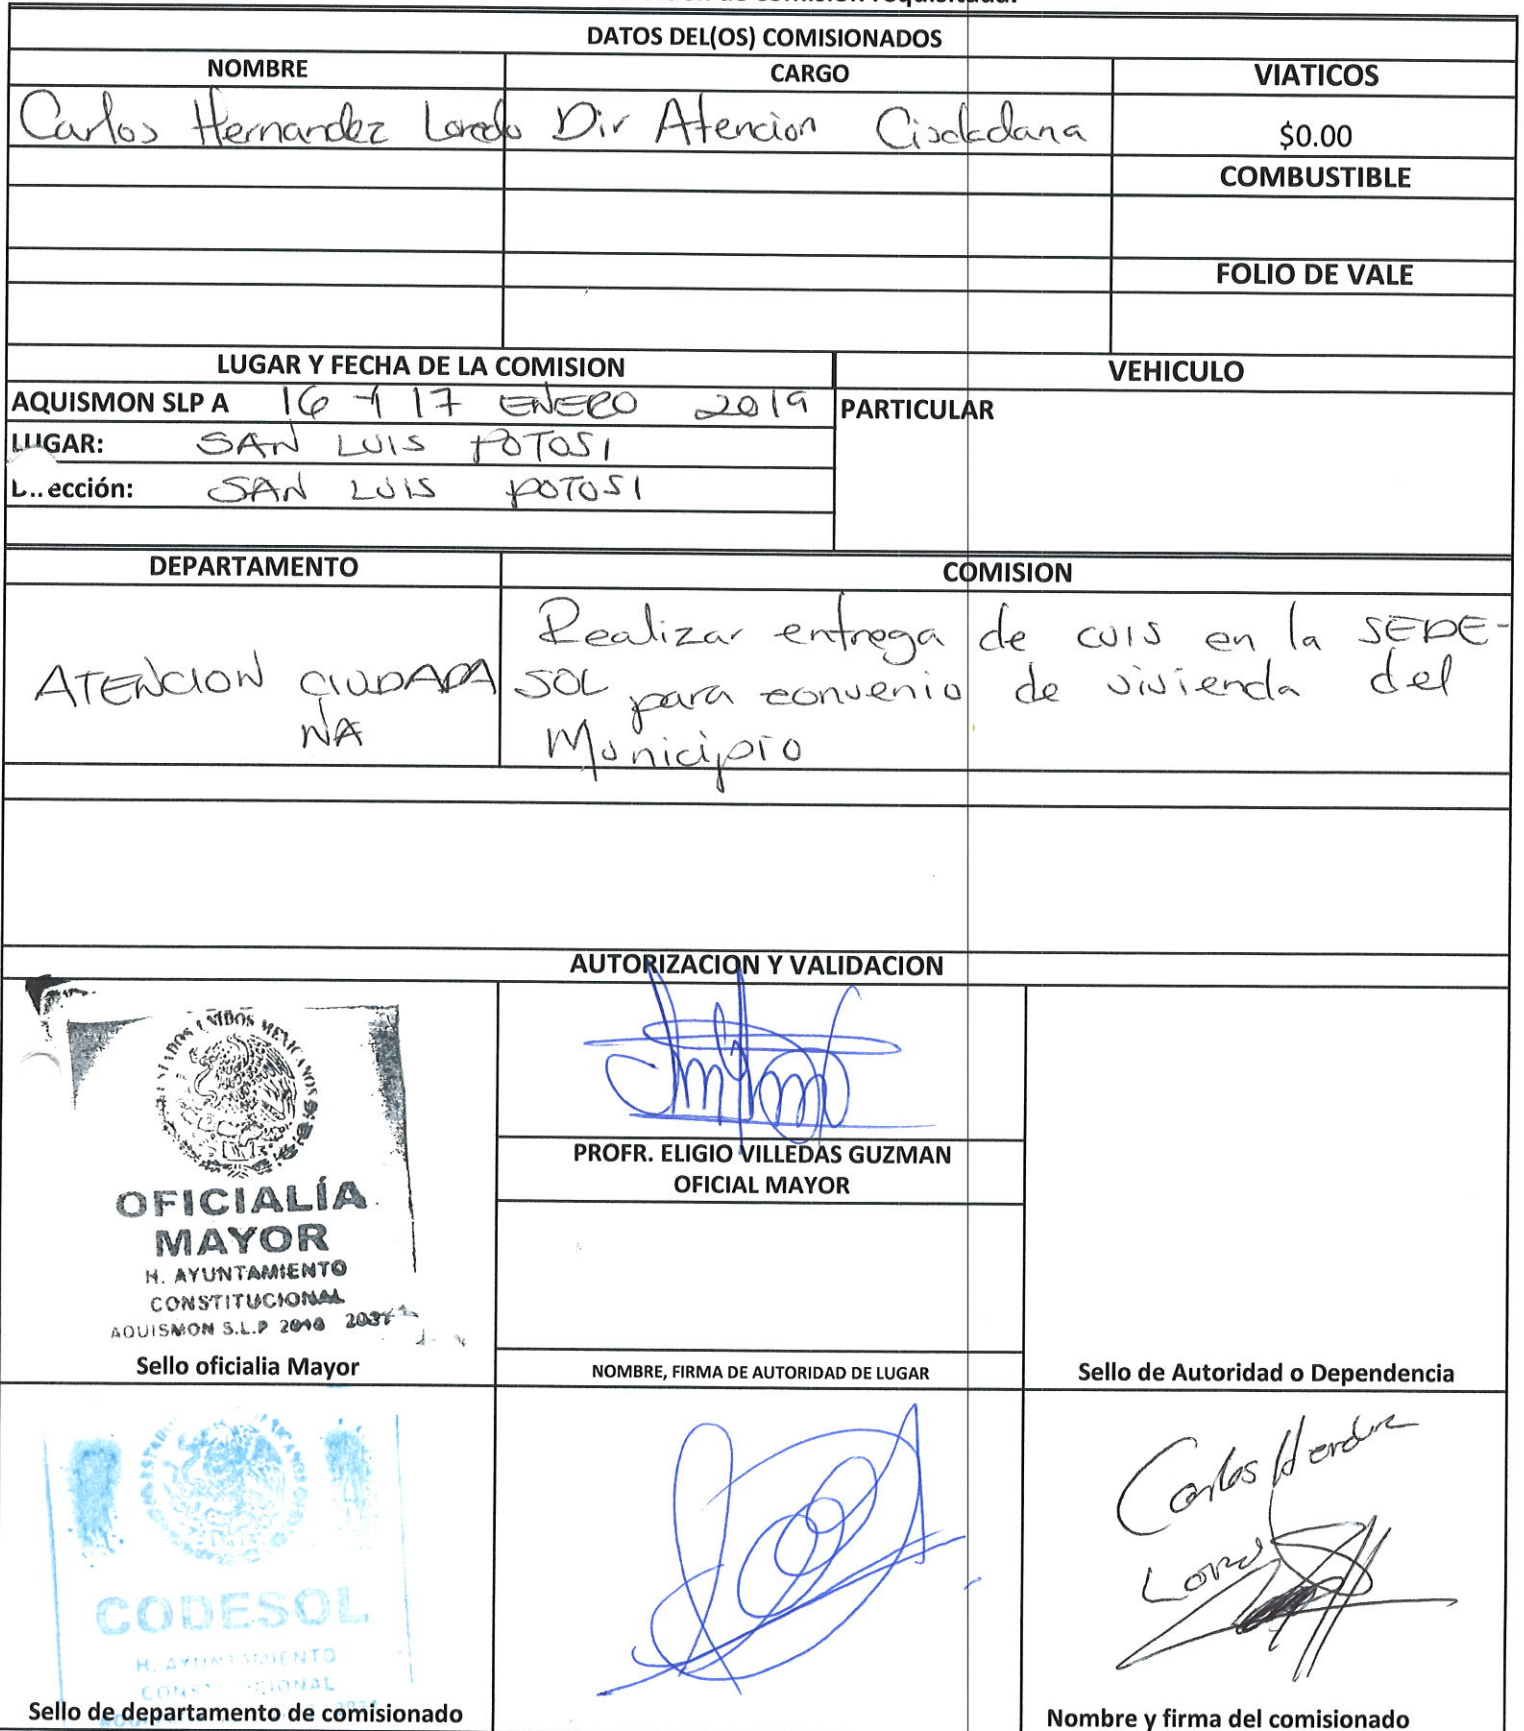 DATOS DEL(OS) COMISIONADOS
NOMBRE CARGO VIATICOS
Carlos Hernandez Loredo Dir Atencion Ciudadana $0.00
COMBUSTIBLE
FOLIO DE VALE
LUGAR Y FECHA DE LA COMISION VEHICULO
AQUISMON SLP A 16 Y 17 ENERO 2019 PARTICULAR
LUGAR: SAN LUIS POTOSI
ección: SAN LUIS POTOSI
DEPARTAMENTO COMISION
ATENCION CIUDADA
NA
Realizar entrega de CUIS en la SEDE-
SOL para convenio de vivienda del
Municipio
AUTORIZACION Y VALIDACION
ESTADOS UNIDOS MEXICANOS
OFICIALÍA
MAYOR
H. AYUNTAMIENTO
CONSTITUCIONAL
AQUISMON S.L.P
Sello oficialia Mayor
PROFR. ELIGIO VILLEDAS GUZMAN
OFICIAL MAYOR
NOMBRE, FIRMA DE AUTORIDAD DE LUGAR
Sello de Autoridad o Dependencia
CODESOL
H. AYUNTAMIENTO
CONSTITUCIONAL
Sello de departamento de comisionado
Carlos
Nombre y firma del comisionado